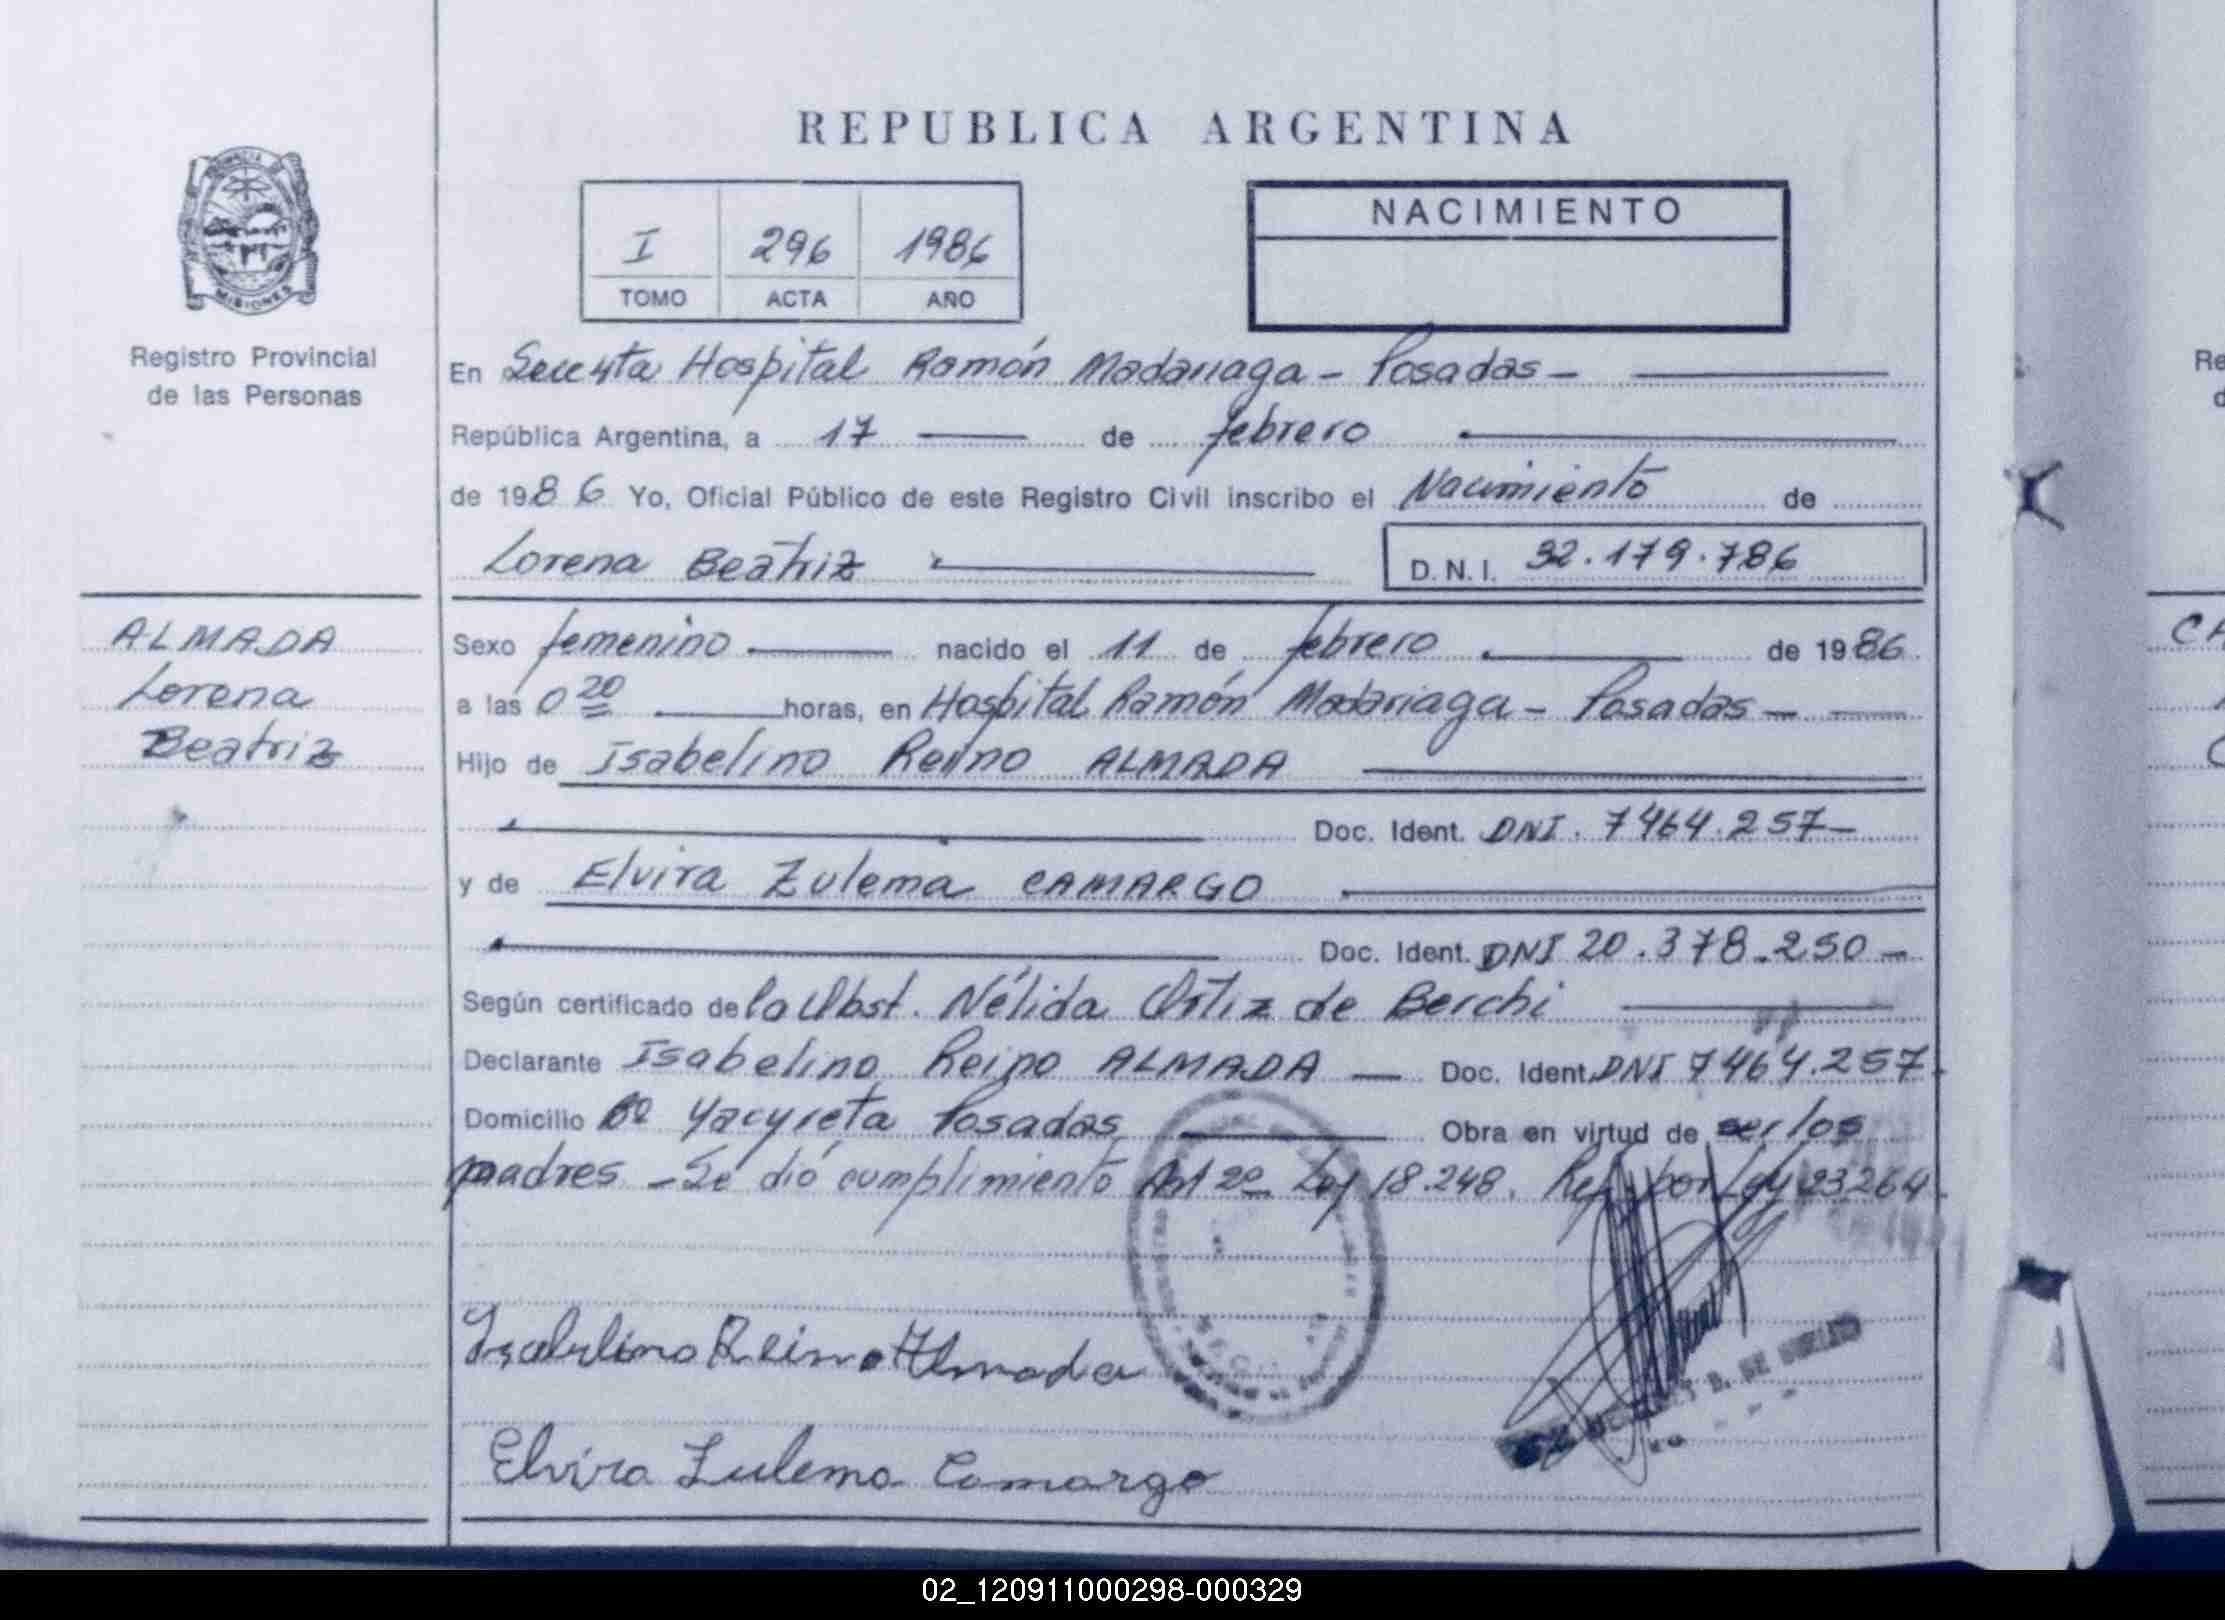 REPUBLICA ARGENTINA
I 296 1986
TOMO ACTA AÑO
NACIMIENTO
MISIONES
Registro Provincial
de las Personas
En Hospital Ramón Madariaga - Posadas -
República Argentina, a 17 de febrero
de 1986 Yo, Oficial Público de este Registro Civil inscribo el Nacimiento de
Lorena Beatriz D.N.I. 32.179.786
ALMADA
Lorena
Beatriz
Sexo femenino nacido el 11 de febrero de 1986
a las 0 20 horas, en Hospital Ramón Madariaga - Posadas -
Hijo de Isabelino Reino ALMADA
Doc. Ident. DNI. 7464.257-
y de Elvira Zulema CAMARGO
Doc. Ident. DNI 20.378.250-
Según certificado de la Obst. Nélida Ortiz de Berchi
Declarante Isabelino Reino ALMADA - Doc. Ident. DNI 7464.257
Domicilio Bº Yacyreta Posadas Obra en virtud de ser los
padres - Se dió cumplimiento Art 2º Ley 18.248. Ref. por Ley 23264
Isabelino Reino Almada
Elvira Zulema Camargo
02_120911000298-000329